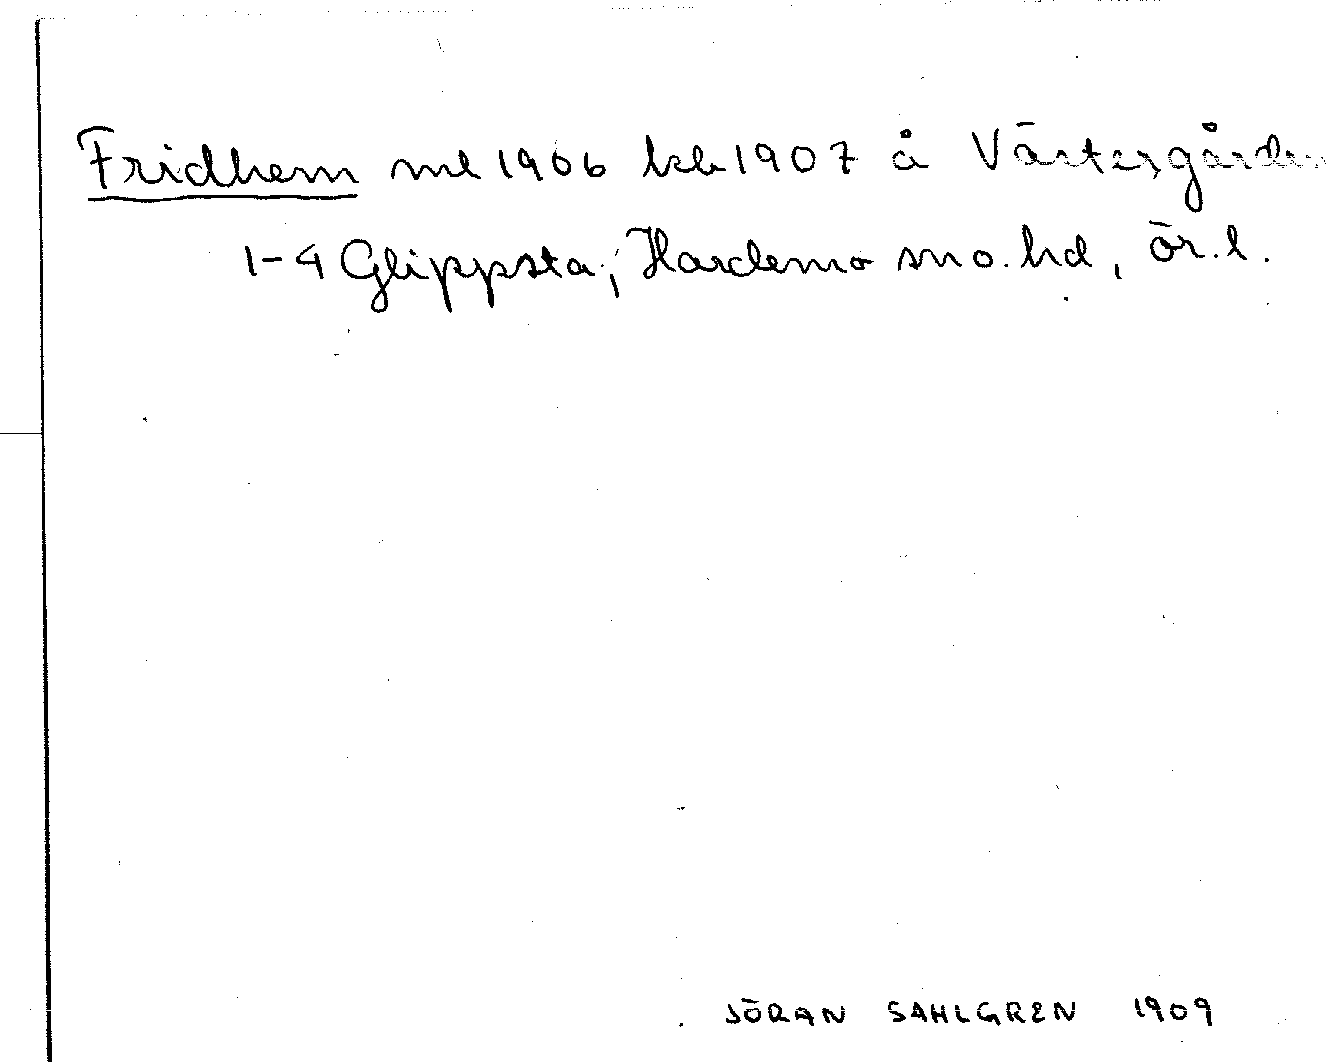 Fridhem ml 1906 kb 1907 å Västergården
1-4 Glippsta, Hardemo sn o. hd, ör.l.
JÖRAN SAHLGREN 1909